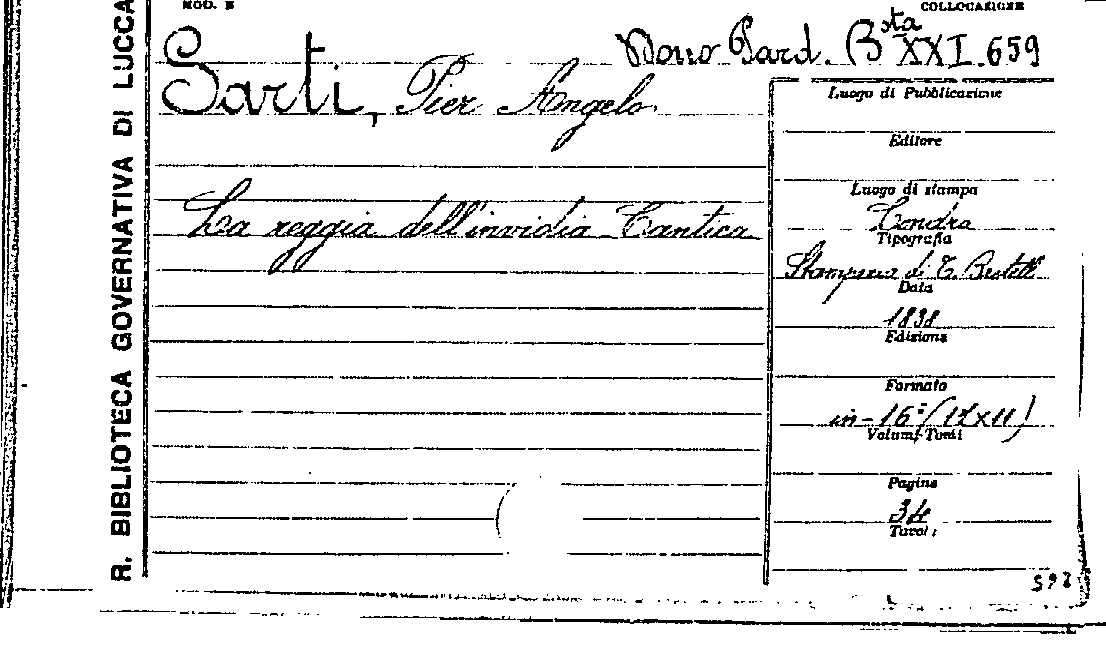 MOD. E
COLLOCAZIONE
Mono Pard. Bsta XXI. 659
Sarti, Pier Angelo
La reggia dell'invidia Cantica
R. BIBLIOTECA GOVERNATIVA DI LUCCA
Luogo di Pubblicazione
Editore
Luogo di stampa
Londra
Tipografia
Stamperia di C.
Data
1838
Edizione
Formato
in-16º
Volumi-Tomi
Pagine
34
Tavole